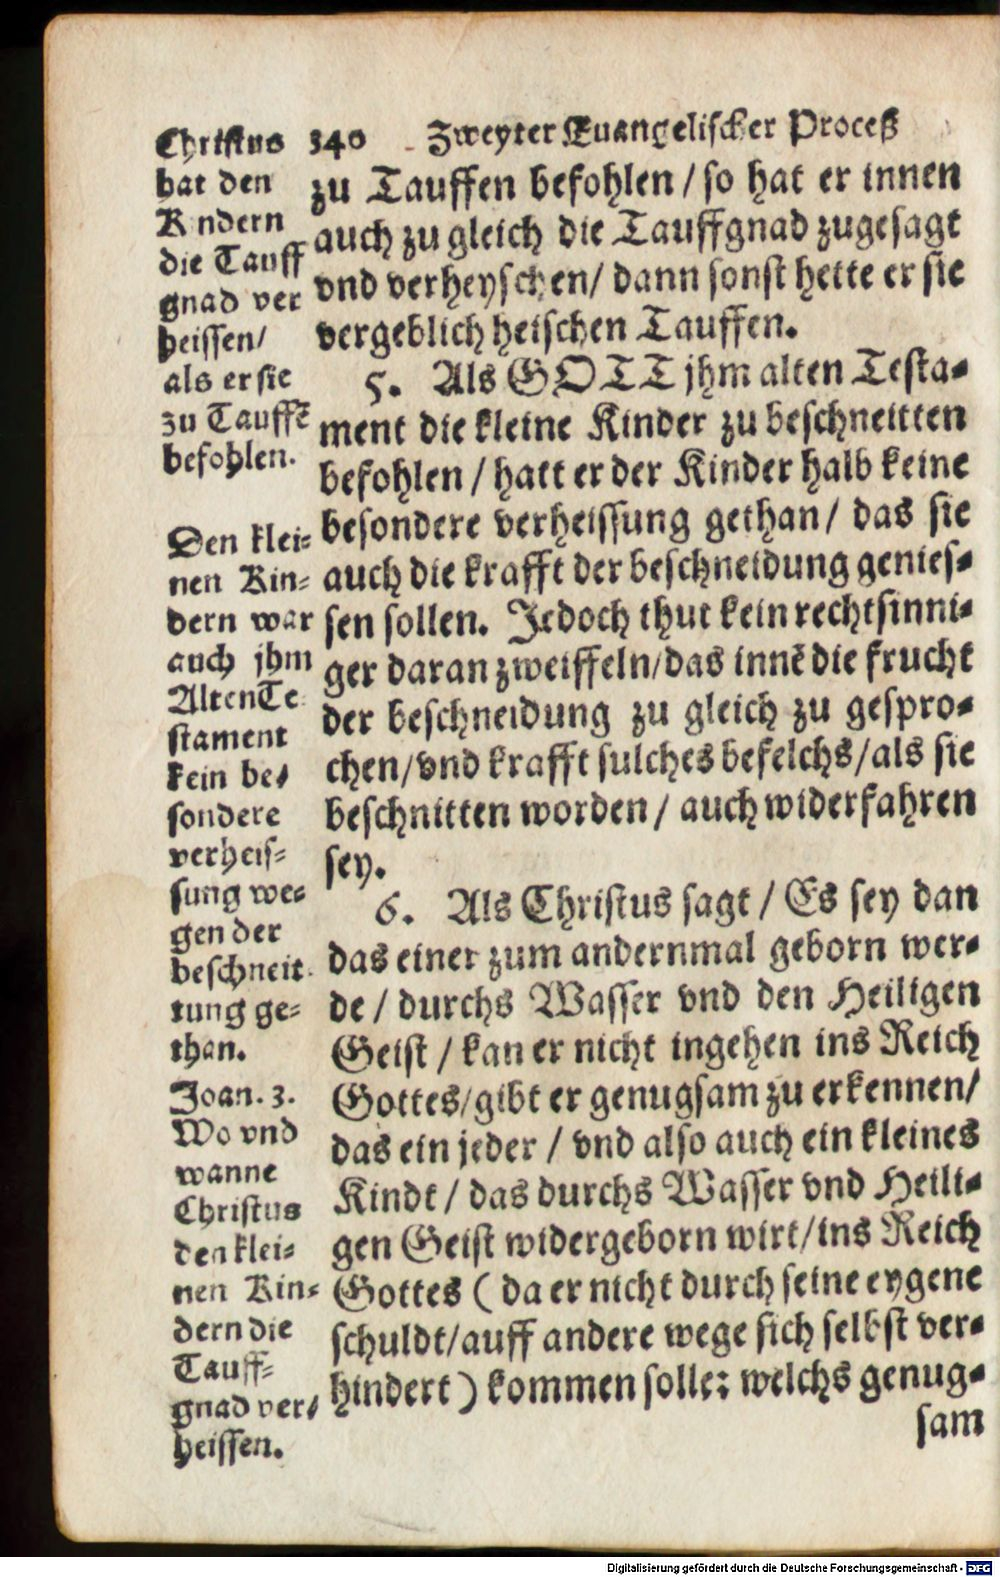 340 Zweyter Euangelischer Proceß
zu Tauffen befohlen / so hat er innen
auch zu gleich die Tauffgnad zugesagt
vnd verheyschen / dann sonst hette er sie
vergeblich heischen Tauffen.
5. Als GOTT jhm alten Testa-
ment die kleine Kinder zu beschneitten
befohlen / hatt er der Kinder halb keine
besondere verheissung gethan / das sie
auch die krafft der beschneidung genies-
sen sollen. Jedoch thut kein rechtsinni-
ger daran zweiffeln / das innẽ die frucht
der beschneidung zu gleich zu gespro-
chen / vnd krafft sulches befelchs / als sie
beschnitten worden / auch widerfahren
sey.
6. Als Christus sagt / Es sey dan
das einer zum andernmal geborn wer-
de / durchs Wasser vnd den Heiligen
Geist / kan er nicht ingehen ins Reich
Gottes / gibt er genugsam zu erkennen /
das ein jeder / vnd also auch ein kleines
Kindt / das durchs Wasser vnd Heili-
gen Geist widergeborn wirt / ins Reich
Gottes ( da er nicht durch seine eygene
schuldt / auff andere wege sich selbst ver-
hindert ) kommen solle: welchs genug-
sam
Christus
hat den
K ndern
die Tauff
gnad ver
heissen /
als er sie
zu Tauffẽ
befohlen.
Den klei-
nen Kin-
dern war
auch jhm
Alten Te
stament
kein be-
sondere
verheis-
sung we-
gen der
beschneit
tung ge-
than.
Joan. 3.
Wo vnd
wanne
Christus
den klei-
nen Kin-
dern die
Tauff-
gnad ver-
heissen.
Digitalisierung gefördert durch die Deutsche Forschungsgemeinschaft - DFG